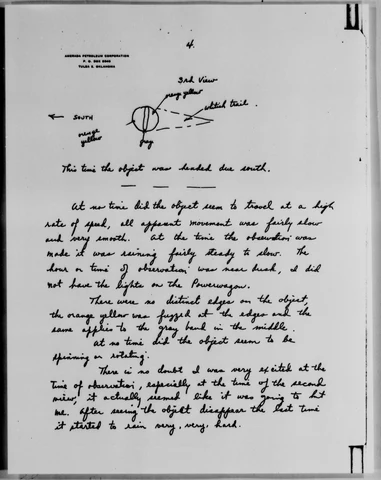 4.
AMERADA PETROLEUM CORPORATION
P. O. BOX 2040
TULSA 2, OKLAHOMA
3rd View
orange yellow
whitish trail.
← SOUTH
orange
yellow
gray
This time the object was headed due south.
At no time did the object seem to travel at a high
rate of speed, all apparent movement was fairly slow
and very smooth. At the time the observation was
made it was raining fairly steady to slow. The
hour or time of observation was near dusk, I did
not have the lights on the Powerwagon.
There were no distinct edges on the object,
the orange yellow was fuzzed at the edges and the
same applies to the gray band in the middle
at no time did the object seem to be
spinning or rotating.
There is no doubt I was very excited at the
time of observation, especially at the time of the second
view, it actually seemed like it was going to hit
me. After seeing the object disappear the last time
it started to rain very, very, hard.